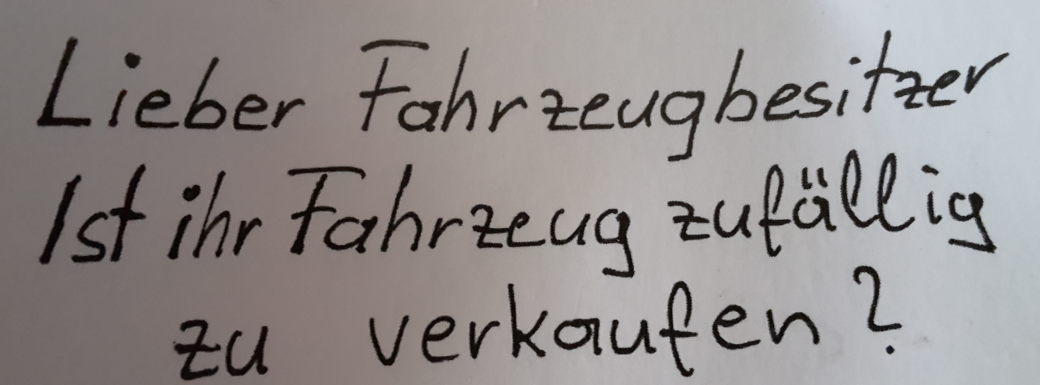 Lieber Fahrzeugbesitzer
Ist ihr Fahrzeug zufällig
zu verkaufen?